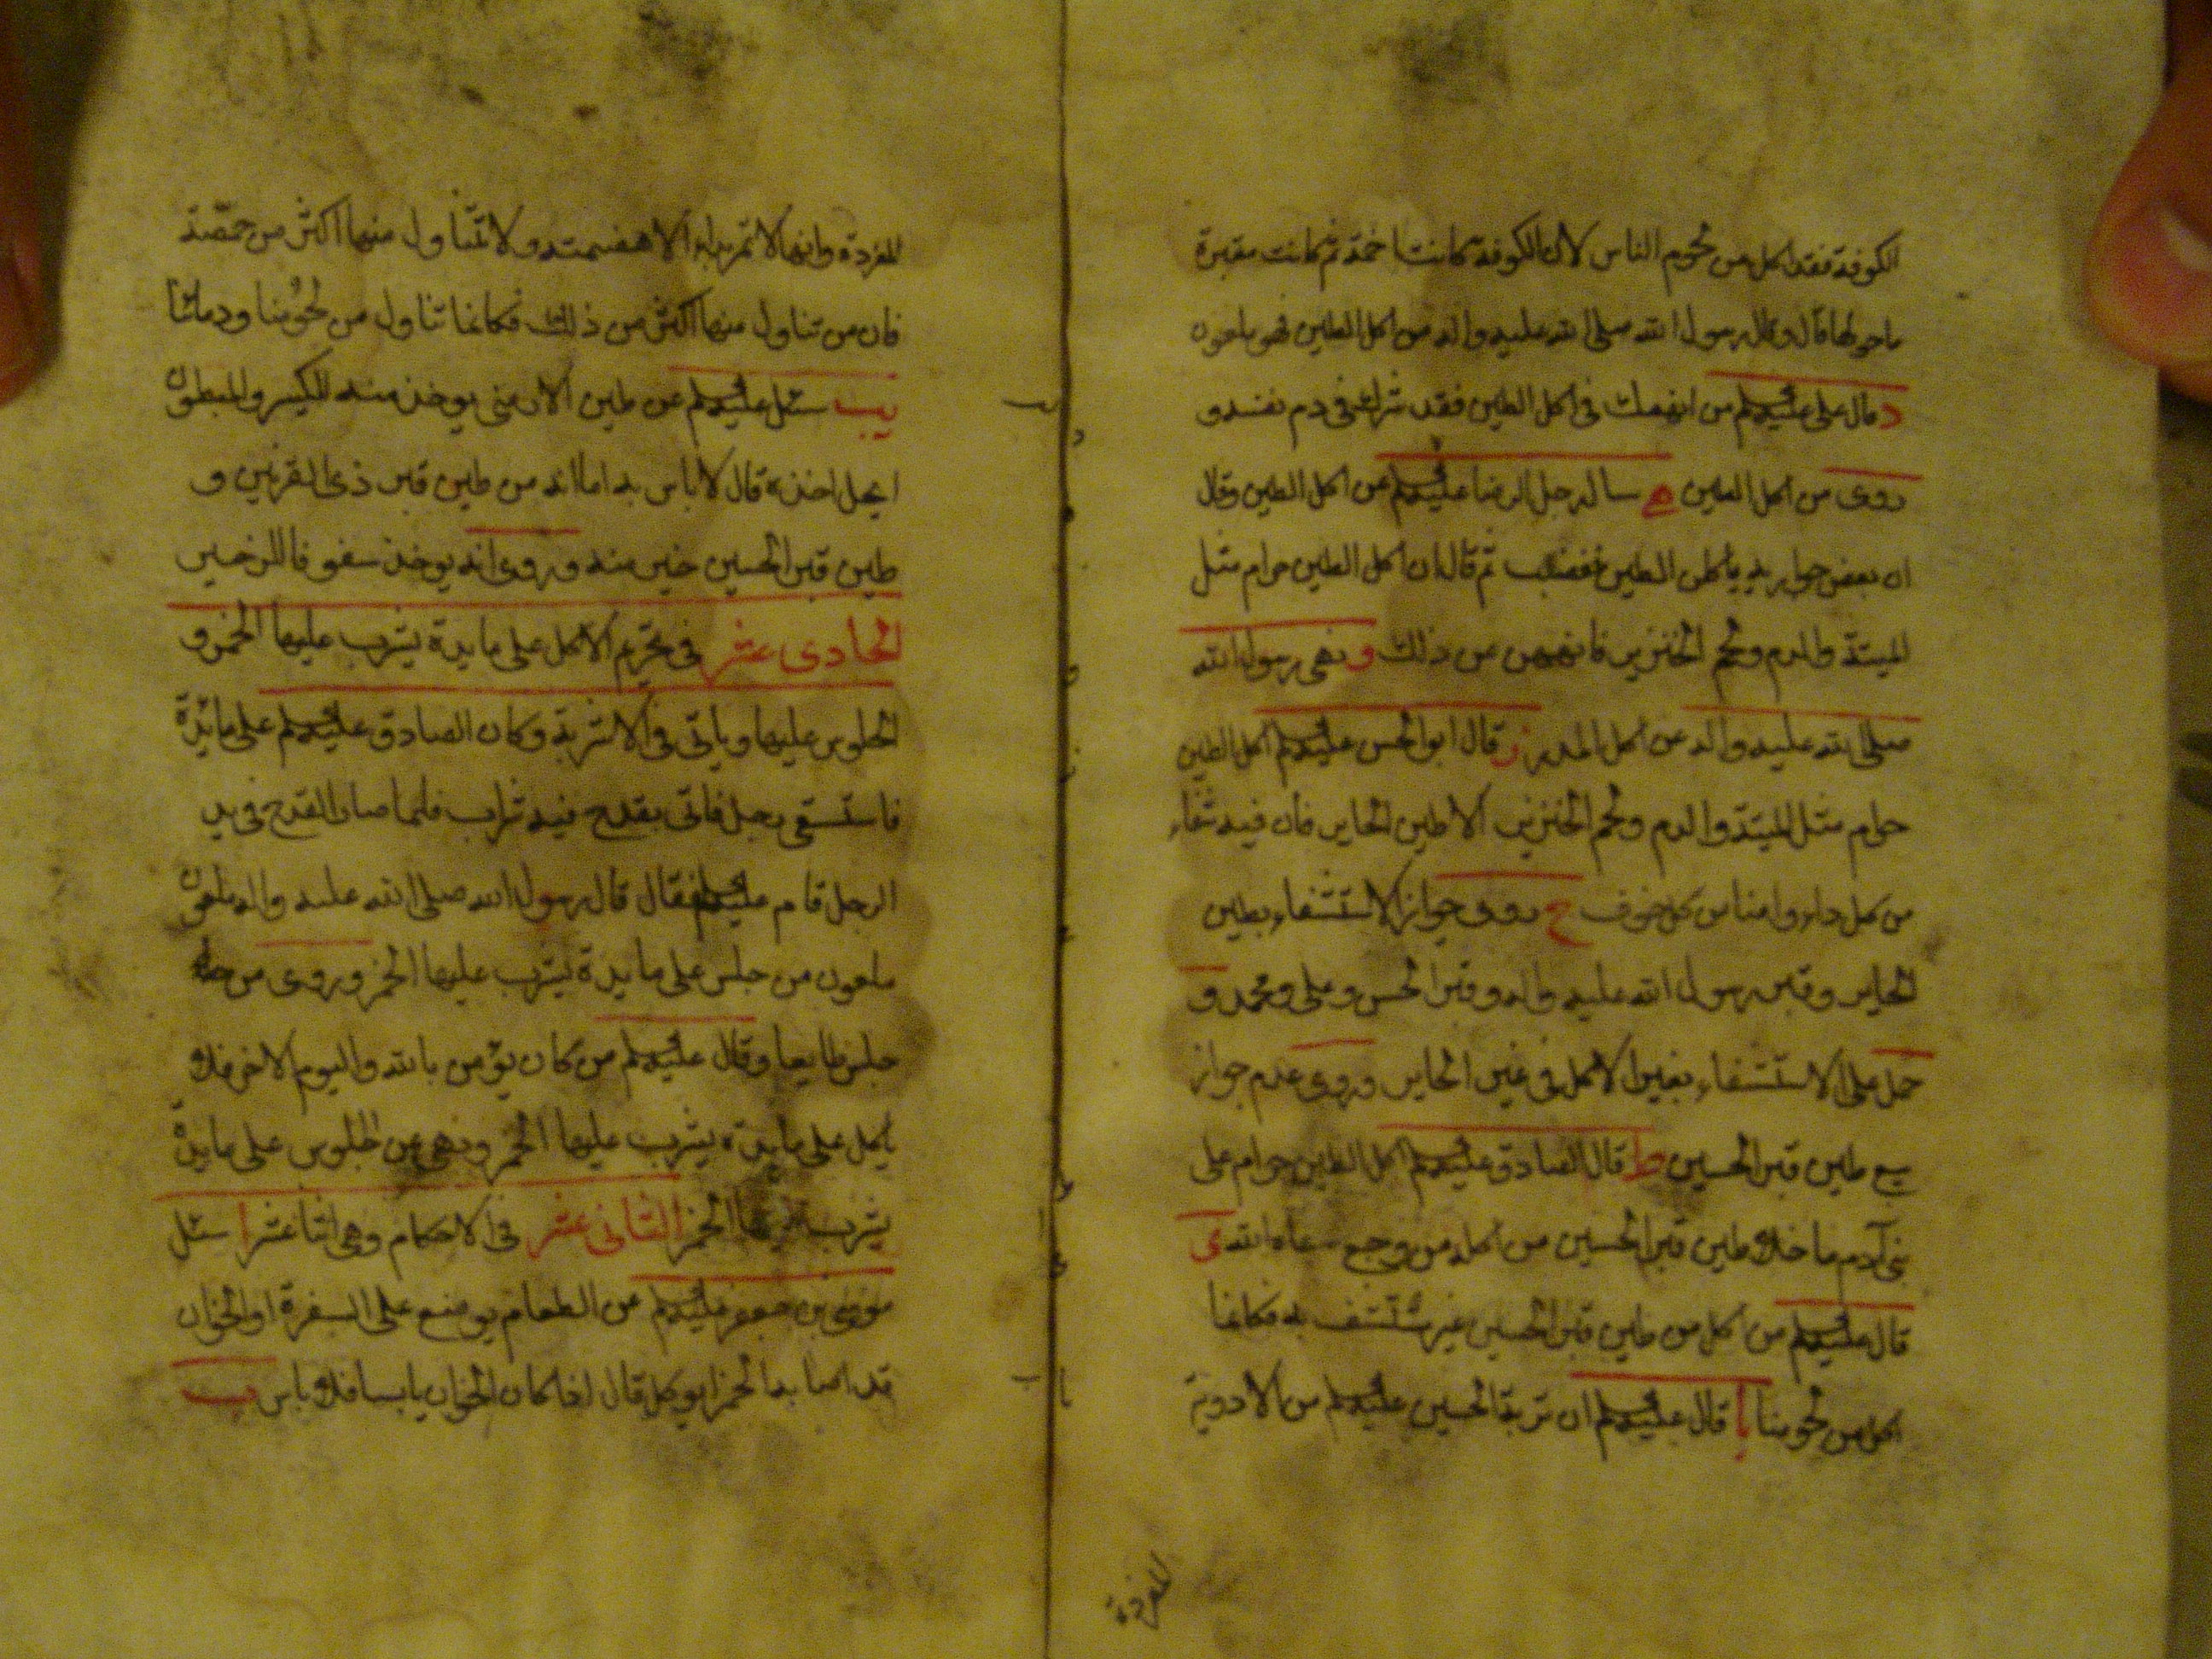 الكوفة فقد اكل من لحوم الناس لان الكوفة كانت اجمة ثم كانت مقبرة
ما حولها قال وقال رسول الله صلى الله عليه واله من اكل الطين فهو ملعون
د قال على عليه السلم من انهمك فى اكل الطين فقد شرك فى دم نفسه و
روى من اكل الطين ه ساله رجل الرضا عليه السلم عن اكل الطين وقال
ان بعض جواريه ياكلن الطين فغضب ثم قال ان اكل الطين حرام مثل
الميتة والدم ولحم الخنزير فانههن عن ذلك و ونهى رسول الله
صلى الله عليه واله عن اكل المدر ز قال ابو الحسن عليه السلم اكل الطين
حرام مثل الميتة والدم ولحم الخنزير الا طين الحاير فان فيه شفاء
من كل داء وامنا من كل خوف ح روى جواز الاستشفاء بطين
الحاير وقبر رسول الله عليه واله وقبر الحسن وعلى ومحمد و
حمل على الاستشفاء بغير الاكل فى غير الحاير وروى عدم جواز
بيع طين قبر الحسين ط قال الصادق عليه السلم اكل الطين حرام على
بنى آدم ما خلا طين قبر الحسين من اكله من وجع شفاه الله ى
قال عليه السلم من اكل من طين قبر الحسين غير مستشف به فكانما
اكل من لحومنا يا قال عليه السلم ان تربة الحسين عليه السلم من الادوية
المفردة
المفردة وانها لا تمر بداء الا هضمته ولا تتناول منها اكثر من حمّصة
فان من تناول منها اكثر من ذلك فكانما تناول من لحومنا ودمائنا
يب سئل عليه السلم عن طين الارمنى يوخذ منه للكسير والمبطون
ايحل اخذه قال لا باس به اما انه من طين قبر ذى القرنين و
طين قبر الحسين خير منه وروى انه يوخذ سفوفا للزحير
الحادى عشر فى تحريم الاكل على مايدة يشرب عليها الخمر و
الجلوس عليها وياتى فى الاشربة وكان الصادق عليه السلم على مائدة
فاستسقى رجل فاتى بقدح فيه شراب فلما صار القدح فى يد
الرجل قام عليه السلم فقال قال رسول الله صلى الله عليه واله ملعون
ملعون من جلس على مايدة يشرب عليها الخمر وروى من
جلس طايعا وقال عليه السلم من كان يؤمن بالله واليوم الاخر فلا
ياكل على مايدة يشرب عليها الخمر ونهى عن الجلوس على مايدة
يشرب عليها الخمر الثانى عشر فى الاحكام وهى اثنا عشر ا سئل
موسى بن جعفر عليه السلم عن الطعام يوضع على السفرة او الخوان
قد اصابه الخمر ايوكل قال اذا كان الخوان يابسا فلا باس ب